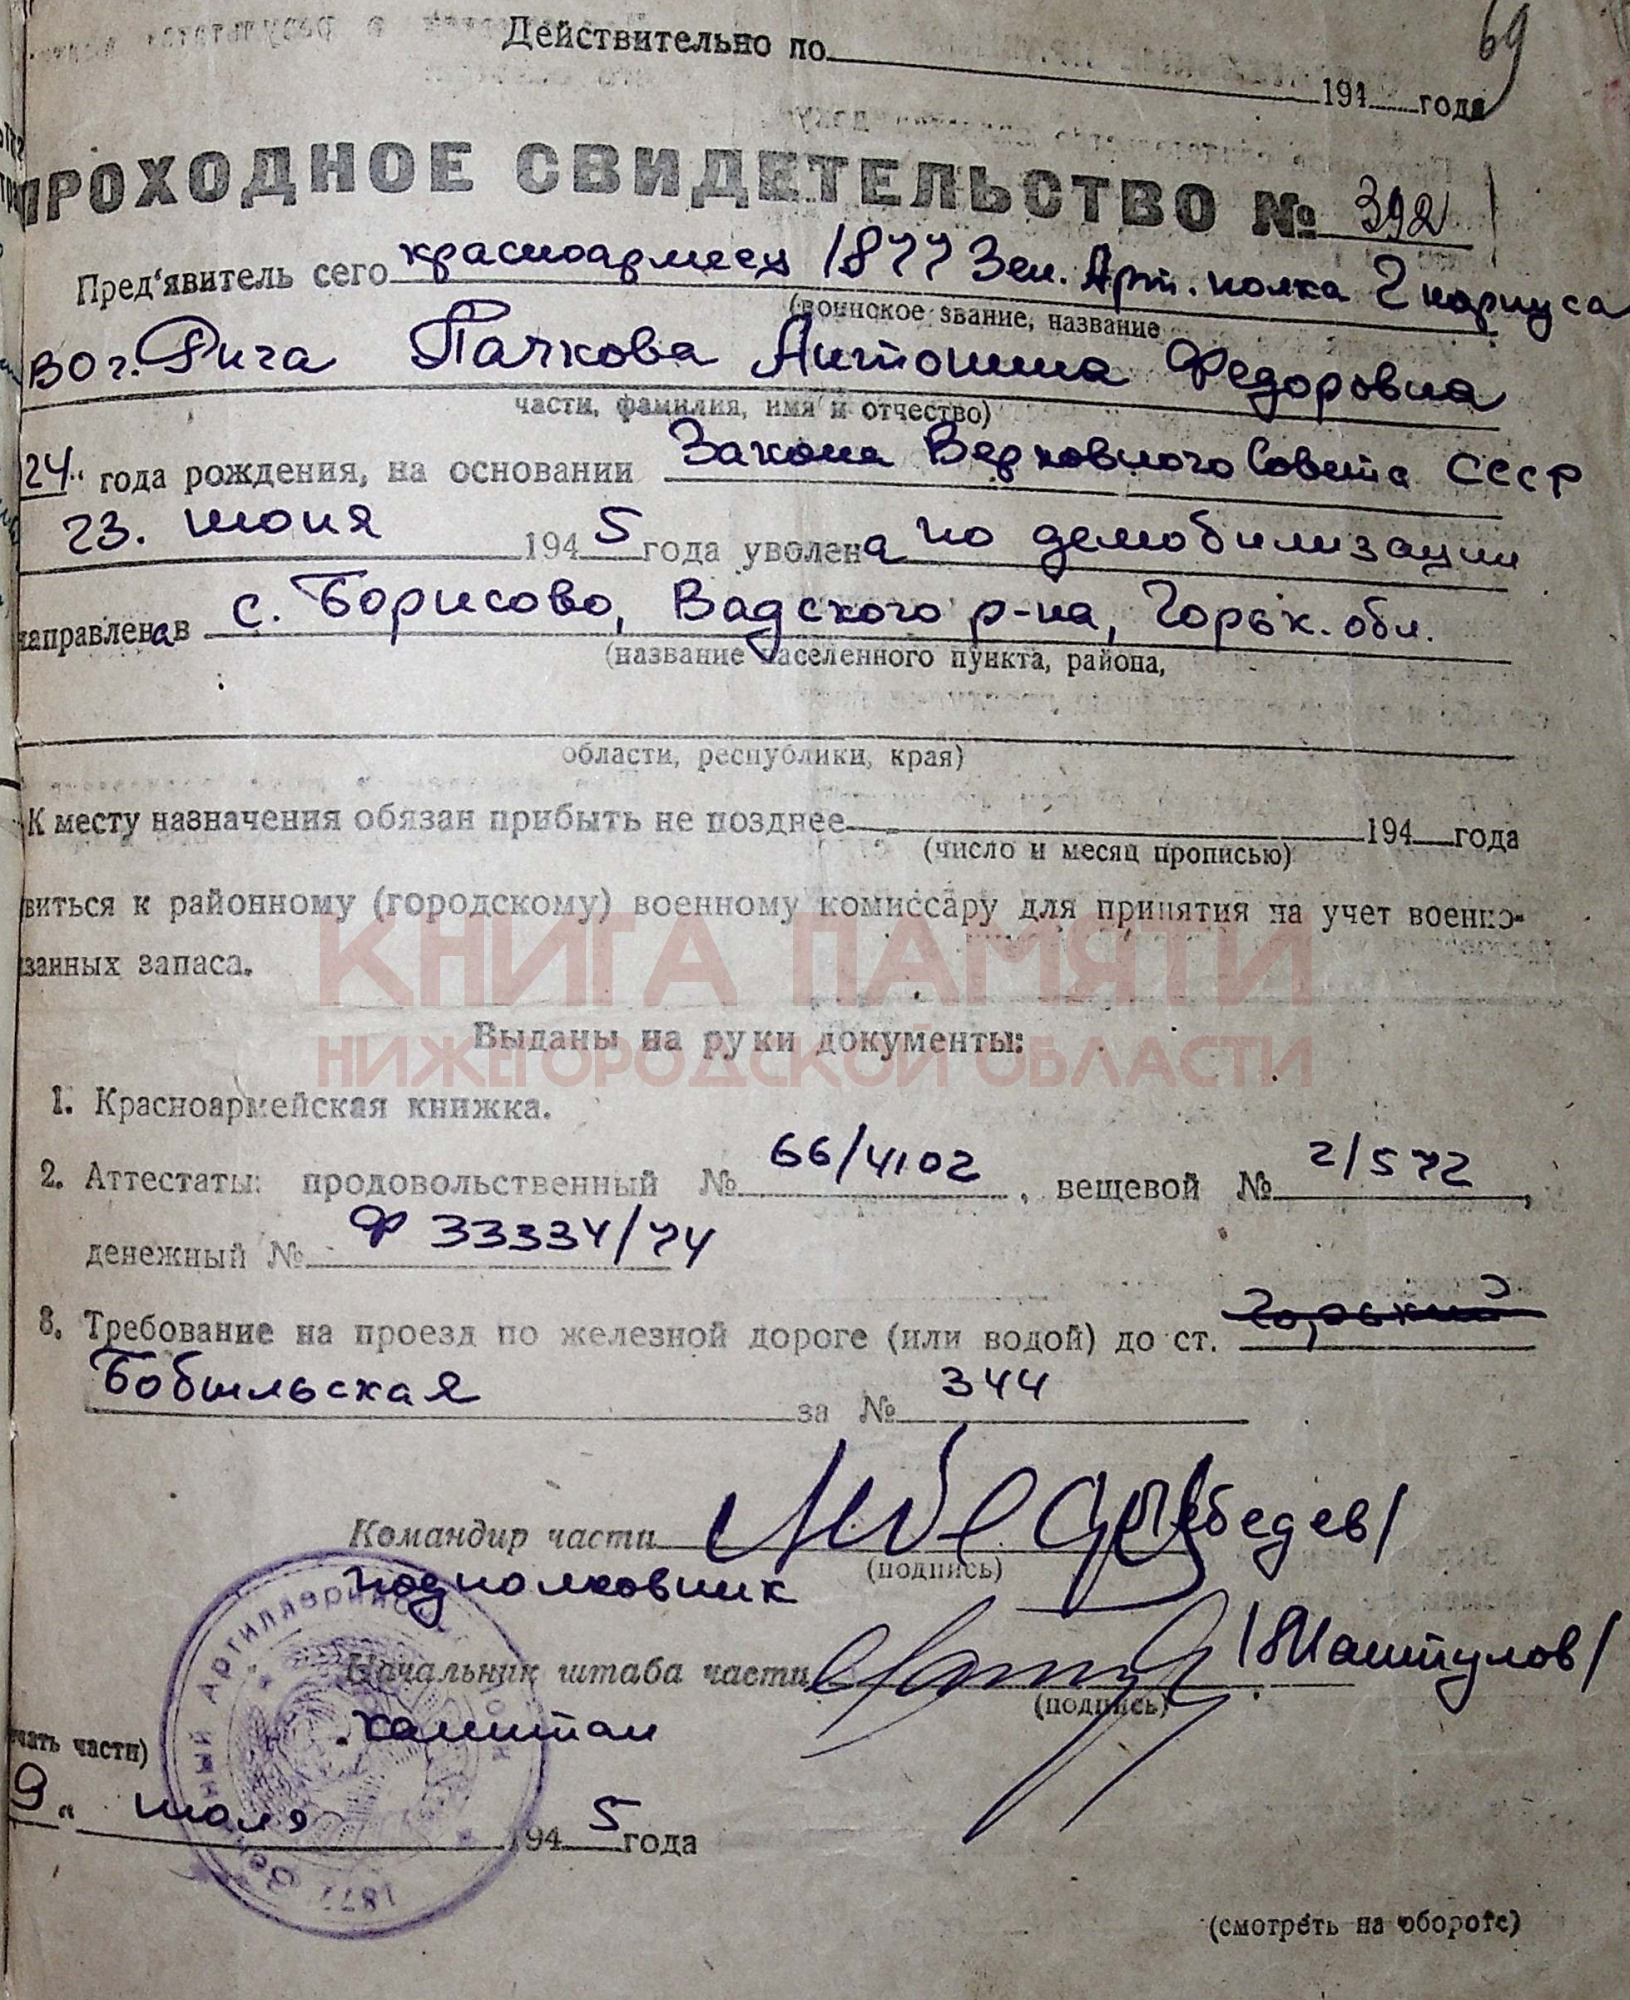 69
Действительно по 194 года
ПРОХОДНОЕ СВИДЕТЕЛЬСТВО № 392
Пред'явитель сего красноармеец 1877 Зен. Арт. полка 2 корпуса
(воинское звание, название
ВО г. Рига Пачкова Антонина Федоровна
части, фамилия, имя и отчество)
24" года рождения, на основании Закона Верховного Совета СССР
23. июня 1945 года уволена по демобилизации
направлена в с. Борисово, Вадского р-на, Горьк. обл.
(название населенного пункта, района,
области, республики, края)
К месту назначения обязан прибыть не позднее 194 года
(число и месяц прописью)
виться к районному (городскому) военному комиссару для принятия на учет военно-
занных запаса.
КНИГА ПАМЯТИ
НИЖЕГОРОДСКОЙ ОБЛАСТИ
Выданы на руки документы:
1. Красноармейская книжка.
2. Аттестаты: продовольственный № 66/4102, вещевой № 2/572,
денежный № Ф 33334/74
3. Требование на проезд по железной дороге (или водой) до ст. Горький
Бобыльская за № 344
Командир части /Лебедев/
(подпись)
подполковник
Начальник штаба части
(подпись)
капитан
чать части)
9" июля 1945 года
1877 Зенитный Артиллерийский полк
(смотреть на обороте)